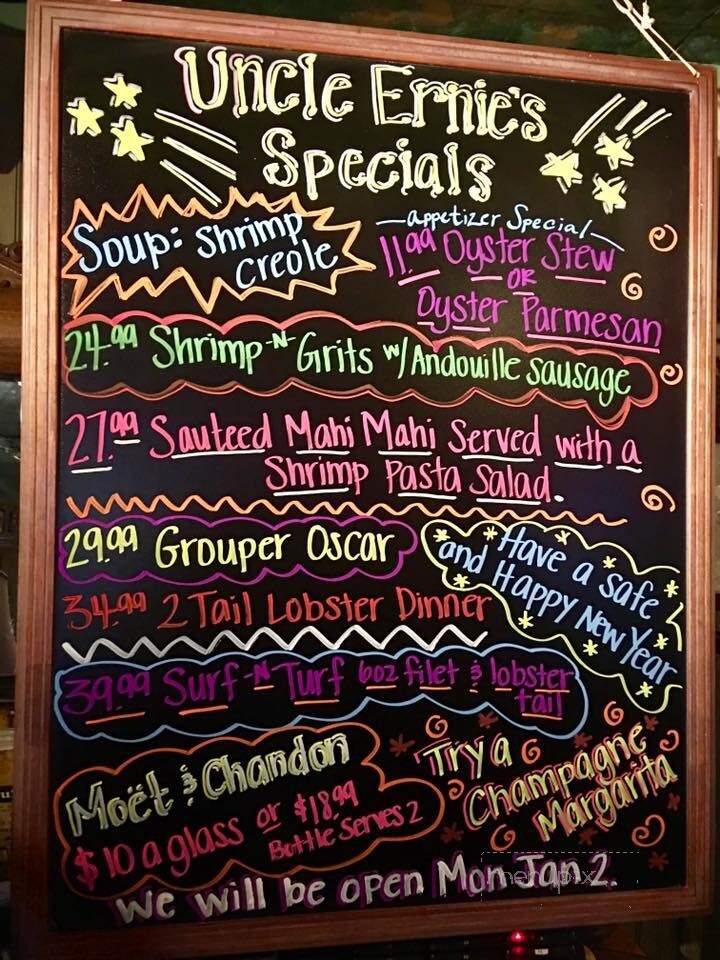 Uncle Ernie's
Specials
Soup: Shrimp
Creole
Appetizer Special
11.99 Oyster Stew
OR
Oyster Parmesan
24.99 Shrimp-N-Grits w/Andouille sausage
27.99 Sauteed Mahi Mahi Served with a
Shrimp Pasta Salad.
29.99 Grouper Oscar
Have a safe
and Happy New Year
34.99 2 Tail Lobster Dinner
39.99 Surf-N-Turf 6oz filet & lobster
tail
Moët & Chandon
$10 a glass or $18.99
Bottle Serves 2
Try a
Champagne
Margarita
We will be open Mon Jan 2.
menupix